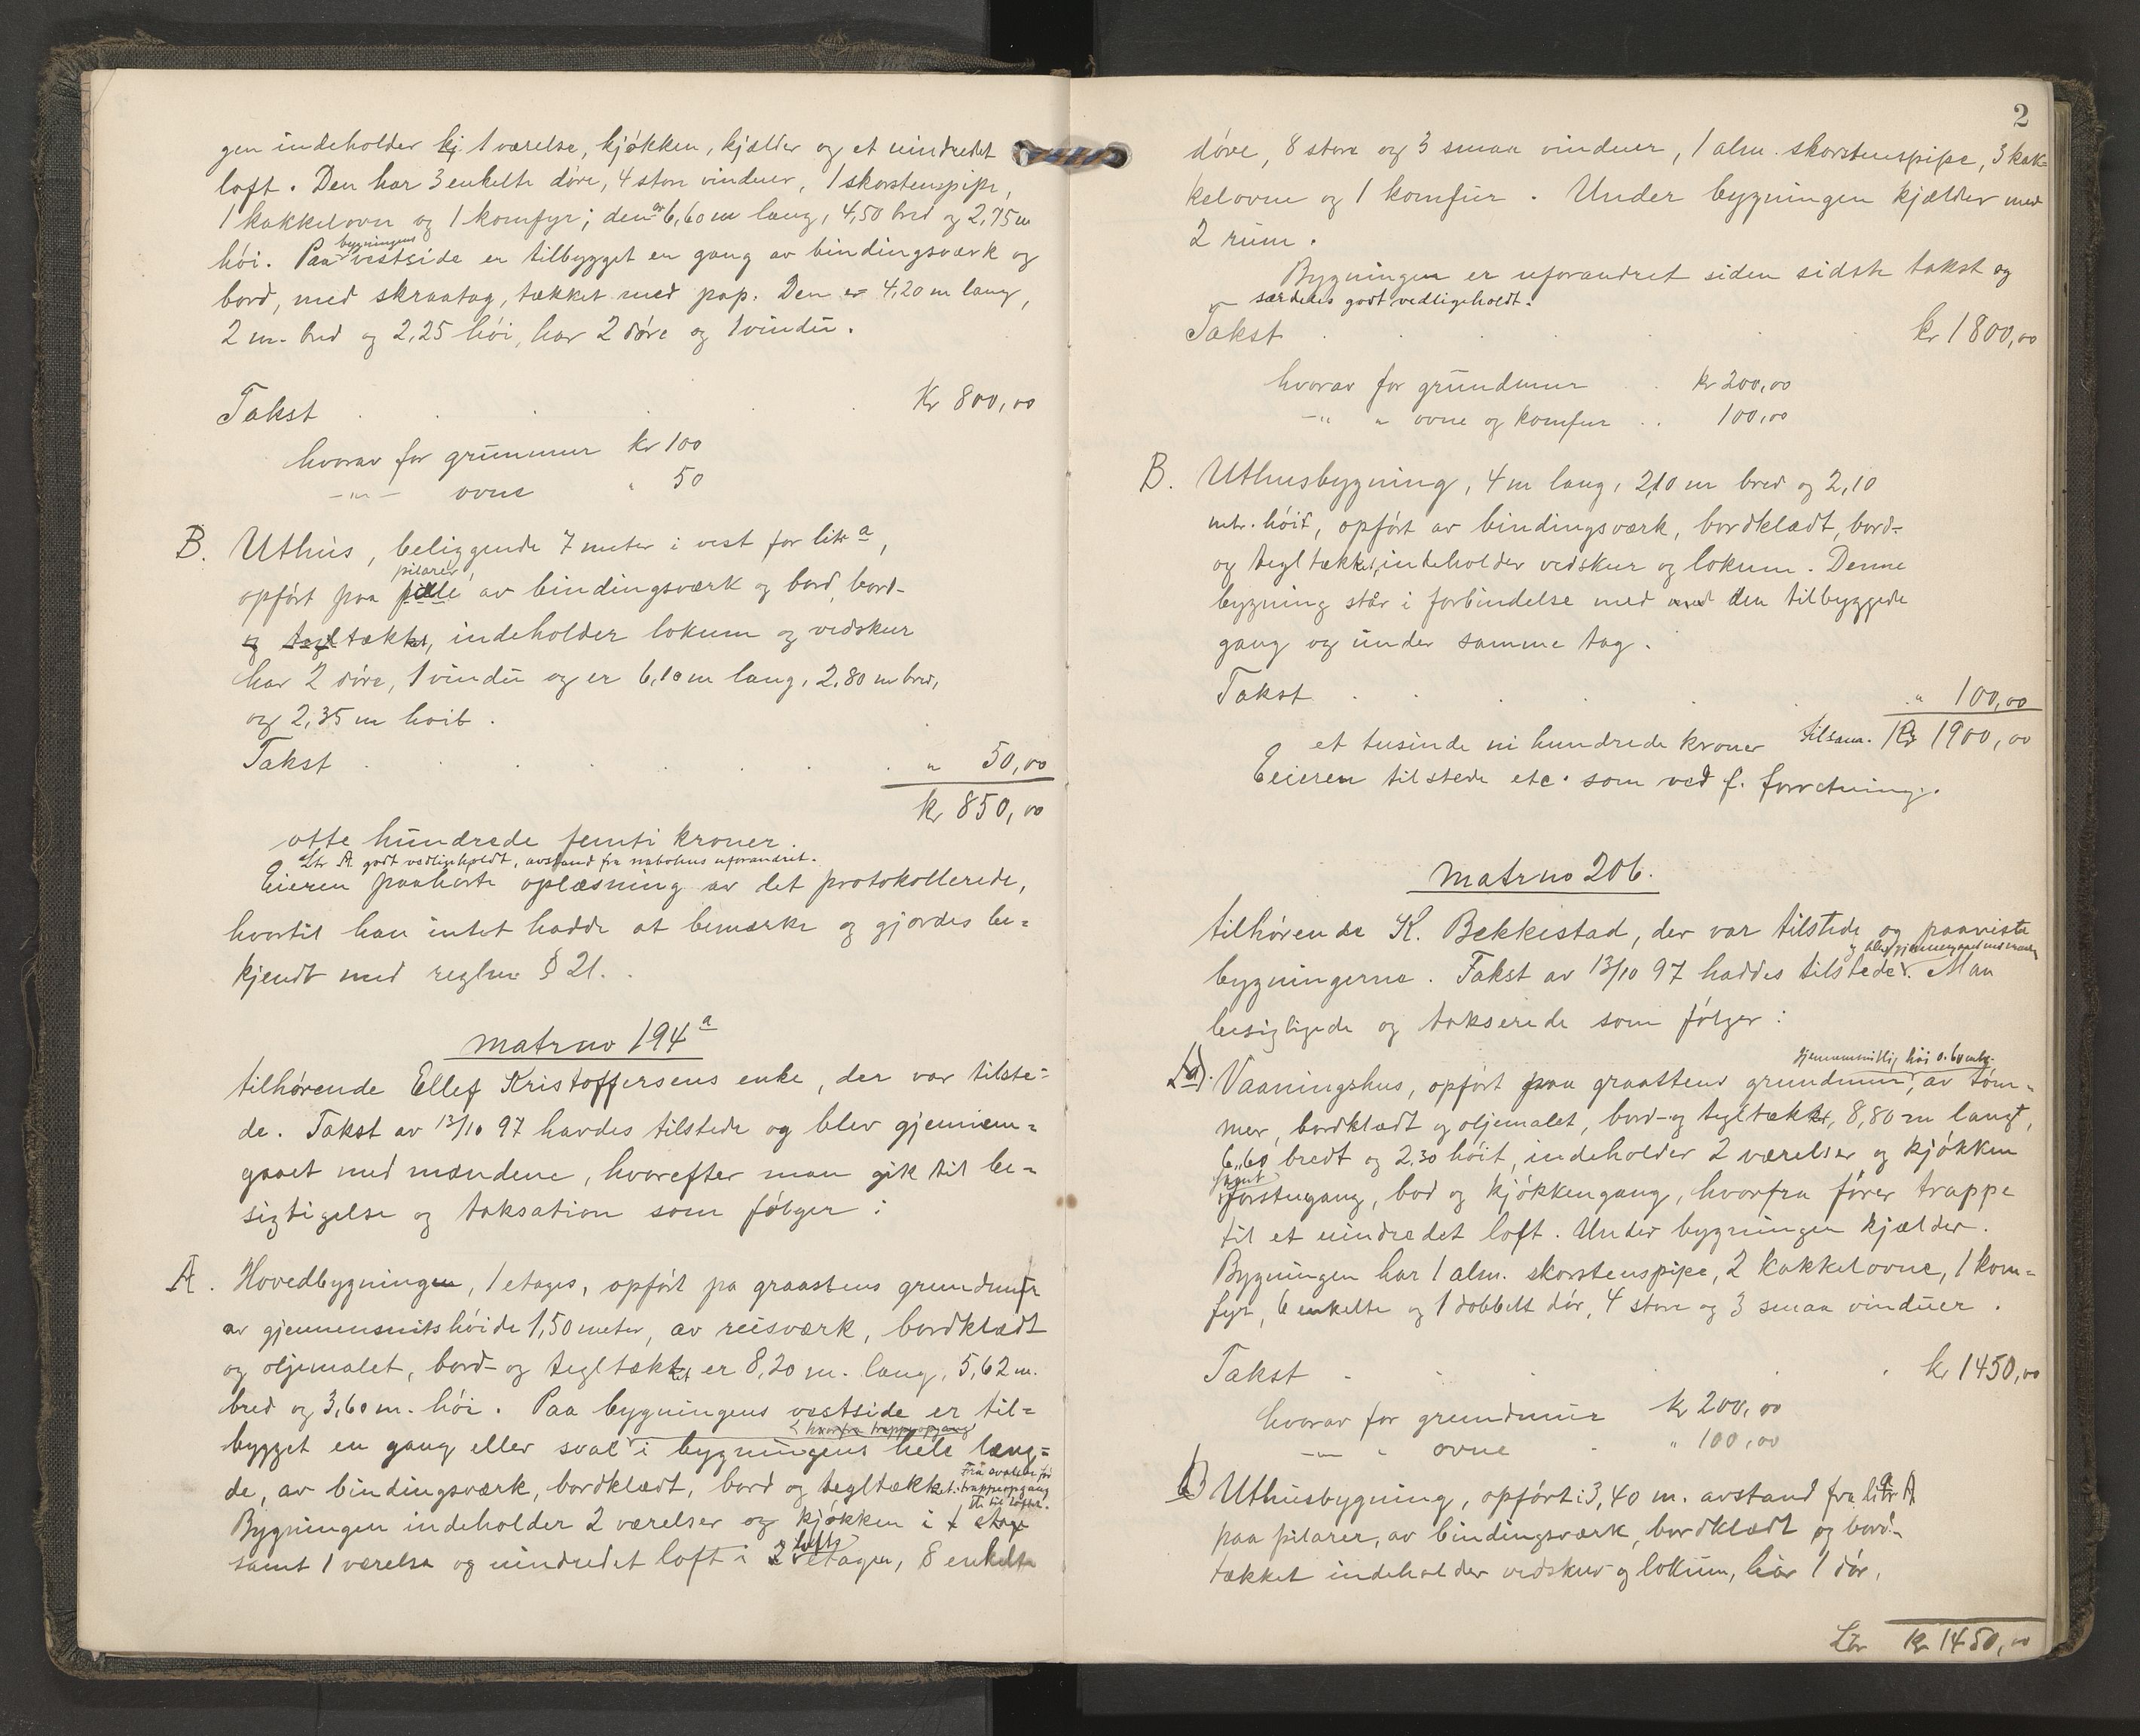 gen indeholder kj 1 værelse, kjøkken, kjælder og et uindredet
loft. Den har 3 enkelte døre, 4 store vinduer, 1 skorstenspipe,
1 kakkelovn og 1 komfyr; den er 6,60 m lang, 4,50 bred og 2,75 m
høi. Paa bygningens vestside er tilbygget en gang av bindingsværk og
bord, med skraatag, tækket med pap. Den er 4,20 m lang,
2 m. bred og 2,25 høi, har 2 døre og 1 vindu.
Takst . . . . . Kr 800,00
hvorav for grunmur kr 100
-"- ovne " 50
B. Uthus, beliggende 7 meter i vest for litr a,
opført paa pilarer av bindingsværk og bord, bord-
og tegl tækket, indeholder lokum og vedskur
har 2 døre, 1 vindu og er 6,10 m lang, 2,80 m bred,
og 2,35 m høit.
Takst . . . . . " 50,00
kr 850,00
otte hundrede femti kroner.
Ltr A. godt vedligeholdt, avstand fra nabohus uforandret.
Eieren paahørte oplæsning av det protokollerede,
hvortil han intet hadde at bemerke og gjordes be-
kjendt med reglene § 21.
Matr no 194 a
tilhørende Ellef Kristoffersens enke, der var tilste-
de. Takst av 13/10 97 havdes tilstede og blev gjennem-
gaaet med mændene, hvorefter man gik til be-
sigtigelse og taksation som følger:
A. Hovedbygningen, 1 etages, opført pa graastens grundmur
av gjennemsnitshøide 1,50 meter, av reisværk, bordklædt
og oljemalet, bord- og tegltækket er 8,20 m. lang, 5,62 m.
bred og 3,60 m. høi. Paa bygningens vestside er til-
hvorfra trappeopgang
bygget en gang eller sval i bygningens hele læng-
de, av bindingsværk, bordklædt, bord og tegltækket. Fra svalen før trappeopgang til loftet.
Bygningen indeholder 2 værelser og kjøkken i 1 etage
samt 1 værelse og uindredet loft i 2 lofts etagen, 8 enkelte
2
døre, 8 store og 3 smaa vinduer, 1 alm. skorstenspipe, 3 kak-
kelovne og 1 komfur. Under bygningen kjælder med
2 rum.
Bygningen er uforandret siden sidste takst og
særdeles godt vedligeholdt.
Takst . . . . . kr 1800,00
hvorav for grundmur . . kr 200,00
-"- " ovne og komfur . . 100,00
B. Uthusbygning, 4 m lang, 2,10 m bred og 2,10
mtr. høit, opført av bindingsværk, bordklædt, bord-
og tegltækket, indeholder vedskur og lokum. Denne
bygning står i forbindelse med med den tilbyggede
gang og under samme tag.
Takst . . . . . " 100,00
et tusinde ni hundrede kroner tilsam. Kr 1900,00
Eieren tilstede etc. som ved f. forretning.
Matr no 206.
tilhørende K. Bekkestad, der var tilstede og paaviste
og blev gjennemgaaet med mænden
bygningerne. Takst av 13/10 97 haddes tilstede. Man
besigtigede og takserede som følger:
gjennemsnitlig høi 0.60 mtr.
a) Vaaningshus, opført paa graastens grundmur, av tøm-
mer, bordklædt og oljemalet, bord- og tegltækket, 8,80 m langt,
6,60 bredt og 2.30 høit, indeholder 2 værelser og kjøkken
samt forstugang, bod og kjøkkengang, hvorfra fører trappe
til et uindredet loft. Under bygningen kjælder.
Bygningen har 1 alm. skorstenspipe, 2 kakkelovne, 1 kom-
fyr, 6 enkelte og 1 dobbelt dør, 4 store og 3 smaa vinduer.
Takst . . . . . kr 1450,00
hvorav for grundmur kr 200,00
-"- " ovne . " 100,00
b) Uthusbygning, opført i 3,40 m. avstand fra litr a
paa pilarer, av bindingsværk, bordklædt og bord-
tækket indeholder vedskur og lokum, har 1 dør,
Ltr kr 1450,00